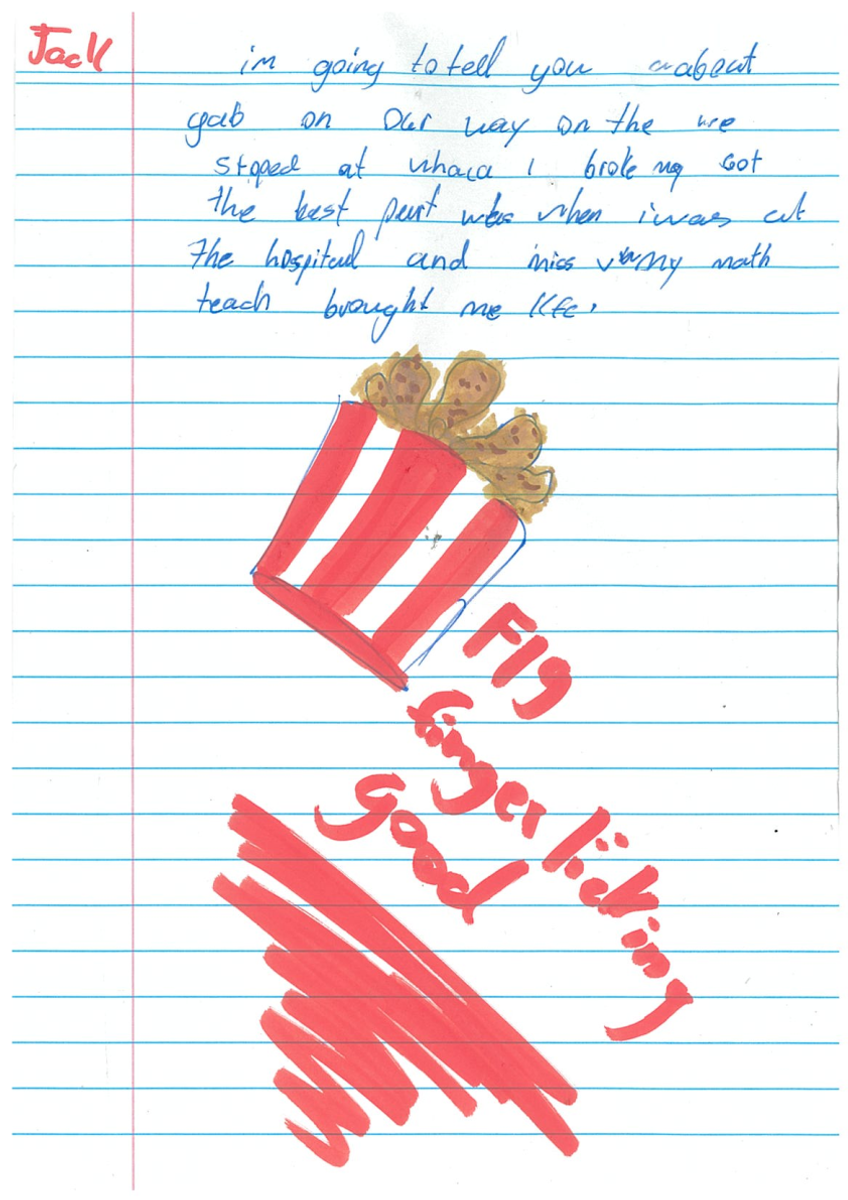 Jack
im going to tell you aabout
gab on our way on the we
stoped at whaca I broke my
the best part was when i was at
the hospital and miss my math
teach brought me Kfc.
F19
finger licking
good